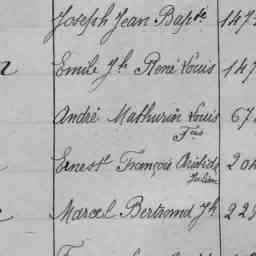 Joseph Jean Bapte 147
Emile Jh René Louis 147
André Mathurin Louis 67
Fçois
Ernest François Aristide 204
Julien
Marcel Bertrand Jh 229